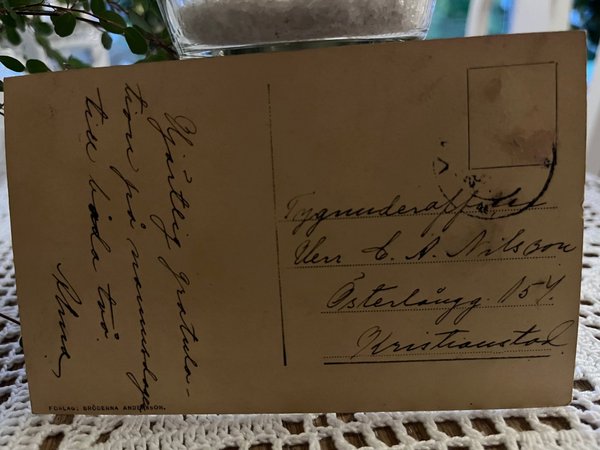 Hjärtlig gratula-
tion på namnsdagen
till båda två.
Alma
Tygunderoffn
Herr C. A. Nilsson
Österlångg. 154.
Kristianstad.
FÖRLAG: BRÖDERNA ANDERSSON.